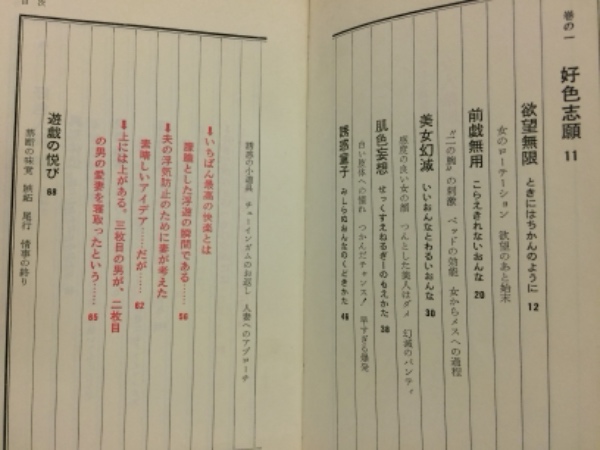 巻の一 好色志願 11
欲望無限 ときにはちかんのように 12
女のローテーション 欲望のあと始末
前戯無用 こらえきれないおんな 20
“二の腕”の刺激 ベッドの効能 女からメスへの過程
美女幻滅 いいおんなとわるいおんな 30
感度の良い女の顔 つんとした美人はダメ 幻滅のパンティ
肌色妄想 せっくすえねるぎーのもえかた 38
白い肢体への憧れ つかんだチャンス! 早すぎる爆発
誘惑童子 みしらぬおんなのくどきかた 46
目次
誘惑の小道具 チューインガムのお返し 人妻へのアプローチ
⬇いちばん最高の快楽とは
朦朧とした浮遊の瞬間である…… 56
⬇夫の浮気防止のために妻が考えた
素晴しいアイデア……だが…… 62
⬇上には上がある。三枚目の男が、二枚目
の男の愛妻を寝取ったという…… 65
遊戯の悦び 68
禁断の味覚 嫉妬 尾行 情事の終り